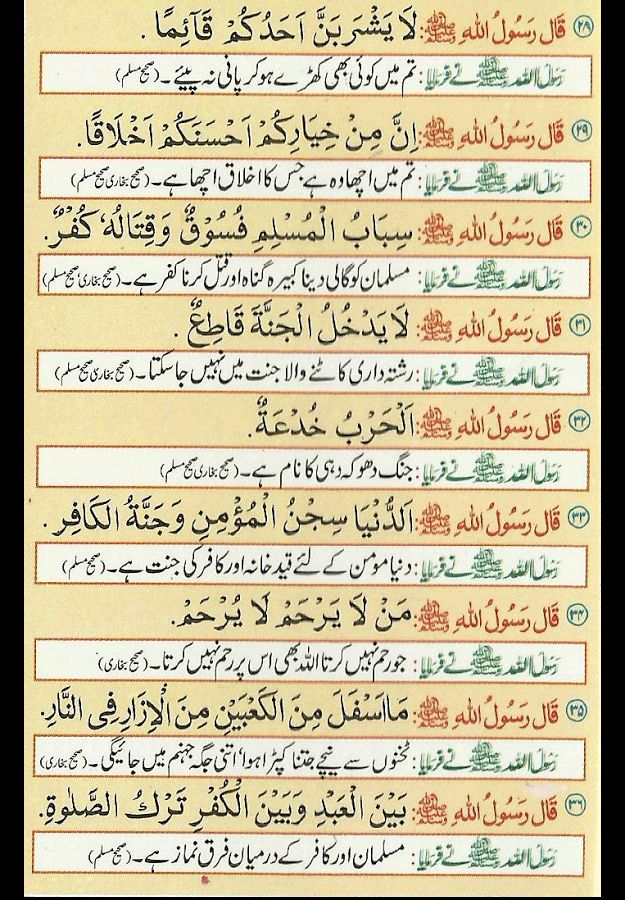 ۲۸ قَالَ رَسُوْلُ اللهِ ﷺ: لَا يَشْرَبَنَّ اَحَدُكُمْ قَآئِمًا.
رَسُوْلُ اللہ ﷺ نے فرمایا: تم میں کوئی بھی کھڑے ہو کر پانی نہ پیئے۔ (صحیح مسلم)
۲۹ قَالَ رَسُوْلُ اللهِ ﷺ: اِنَّ مِنْ خِيَارِكُمْ اَحْسَنَكُمْ اَخْلَاقًا.
رَسُوْلُ اللہ ﷺ نے فرمایا: تم میں اچھا وہ ہے جس کا اخلاق اچھا ہے۔ (صحیح بخاری صحیح مسلم)
۳۰ قَالَ رَسُوْلُ اللهِ ﷺ: سِبَابُ الْمُسْلِمِ فُسُوْقٌ وَقِتَالُهٗ كُفْرٌ.
رَسُوْلُ اللہ ﷺ نے فرمایا: مسلمان کو گالی دینا کبیرہ گناہ اور قتل کرنا کفر ہے۔ (صحیح بخاری صحیح مسلم)
۳۱ قَالَ رَسُوْلُ اللهِ ﷺ: لَا يَدْخُلُ الْجَنَّةَ قَاطِعٌ.
رَسُوْلُ اللہ ﷺ نے فرمایا: رشتہ داری کاٹنے والا جنت میں نہیں جا سکتا۔ (صحیح بخاری صحیح مسلم)
۳۲ قَالَ رَسُوْلُ اللهِ ﷺ: اَلْحَرْبُ خُدْعَةٌ.
رَسُوْلُ اللہ ﷺ نے فرمایا: جنگ دھوکہ دہی کا نام ہے۔ (صحیح بخاری صحیح مسلم)
۳۳ قَالَ رَسُوْلُ اللهِ ﷺ: اَلدُّنْيَا سِجْنُ الْمُؤْمِنِ وَجَنَّةُ الْكَافِرِ.
رَسُوْلُ اللہ ﷺ نے فرمایا: دنیا مومن کے لئے قید خانہ اور کافر کی جنت ہے۔ (صحیح مسلم)
۳۴ قَالَ رَسُوْلُ اللهِ ﷺ: مَنْ لَا يَرْحَمْ لَا يُرْحَمْ.
رَسُوْلُ اللہ ﷺ نے فرمایا: جو رحم نہیں کرتا اللہ بھی اس پر رحم نہیں کرتا۔ (صحیح بخاری)
۳۵ قَالَ رَسُوْلُ اللهِ ﷺ: مَا اَسْفَلَ مِنَ الْكَعْبَيْنِ مِنَ الْاِزَارِ فِى النَّارِ.
رَسُوْلُ اللہ ﷺ نے فرمایا: ٹخنوں سے نیچے جتنا کپڑا ہوا، اتنی جگہ جہنم میں جائیگی۔ (صحیح بخاری)
۳۶ قَالَ رَسُوْلُ اللهِ ﷺ: بَيْنَ الْعَبْدِ وَبَيْنَ الْكُفْرِ تَرْكُ الصَّلٰوةِ.
رَسُوْلُ اللہ ﷺ نے فرمایا: مسلمان اور کافر کے درمیان فرق نماز ہے۔ (صحیح مسلم)